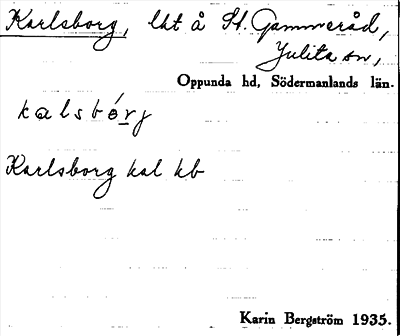 Karlsborg, lht å St. Gammeråd,
Julita sn,
Oppunda hd, Södermanlands län.
kalsbórj
Karlsborg hal kb
Karin Bergström 1935.